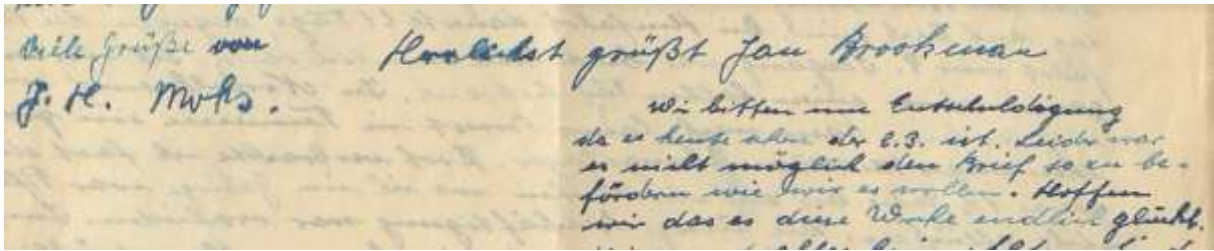 viele Grüße von
J. H. Moks.
Herzlichst grüßt Jan Brookman
Wir bitten um Entschuldigung
da es heute schon der 2.3. ist. Leider war
es nicht möglich den Brief so zu be-
fördern wie wir es wollen. Hoffen
wir das es diese Woche endlich glückt.